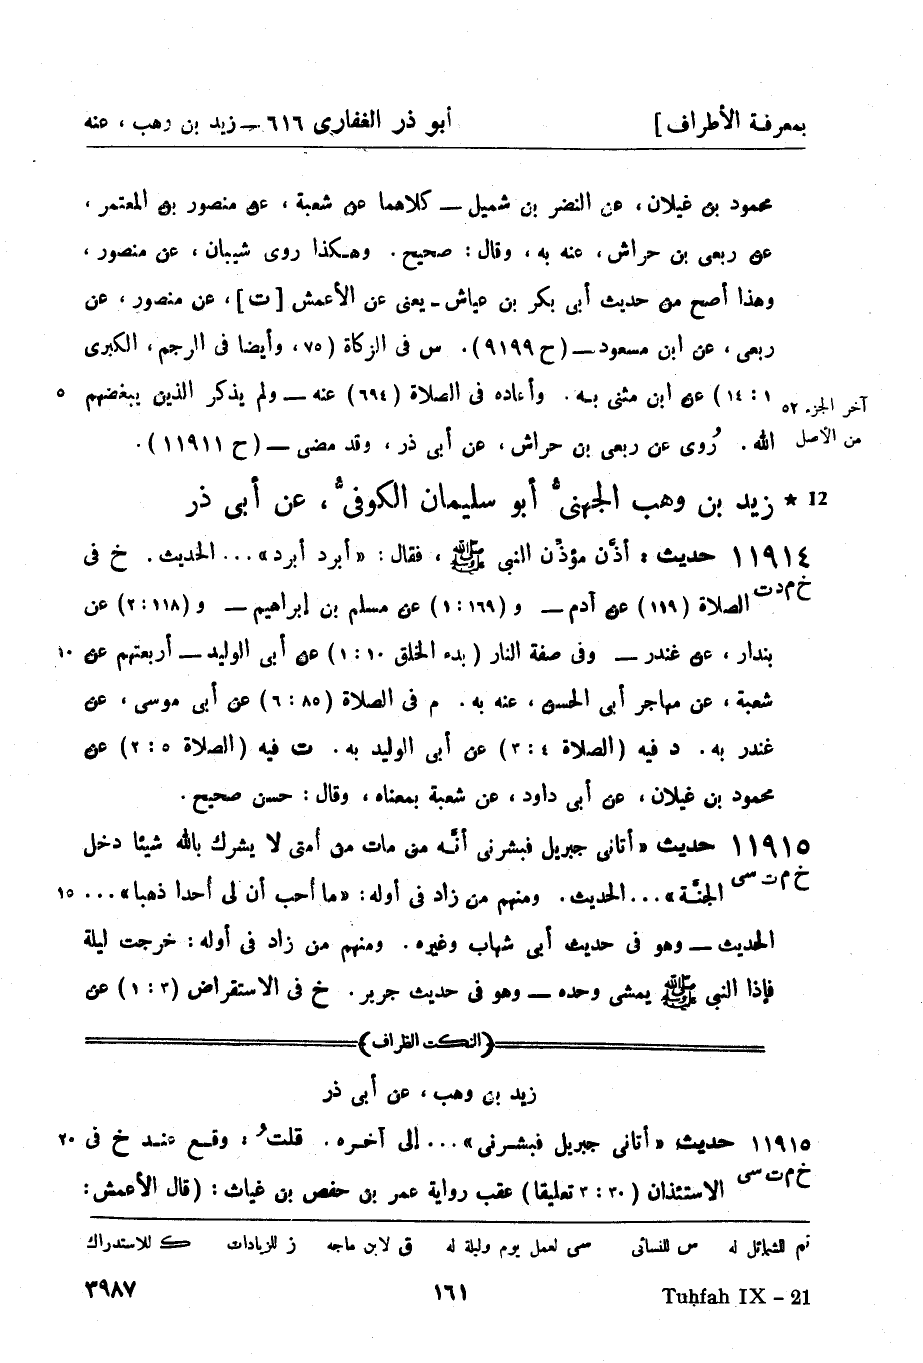 بمعرفة الأطراف] أبو ذر الغفارى ٦١٦ ــ زيد بن وهب ، عنه
محمود بن غيلان، عن النضر بن شميل ــ كلاهما عن شعبة ، عن منصور بن المعتمر ،
عن ربعى بن حراش، عنه به، وقال: صحيح. وهكذا روى شيبان، عن منصور،
وهذا أصح من حديث أبى بكر بن عياش ــ يعنى عن الأعمش [ت]، عن منصور، عن
ربعى، عن ابن مسعود ــ (ح ٩١٩٩). س فى الزكاة (٧٥، وأيضا فى الرجم، الكبرى
١ : ١٤) عن ابن مثنى به. وأعاده فى الصلاة (٦٩٤) عنه ــ ولم يذكر الذين يبغضهم ٥
آخر الجزء ٥٢
من الأصل
الله. رُوى عن ربعى بن حراش، عن أبى ذر، وقد مضى ــ (ح ١١٩١١).
12 * زيد بن وهب الجهنىُّ أبو سليمان الكوفىُّ، عن أبى ذر
١١٩١٤ حديث: أذَّن مؤذّن النبى ﷺ، فقال: «أبرد أبرد»... الحديث. خ فى
خ م د ت
الصلاة (١١٩) عن آدم ــ و (١٦٩ : ١) عن مسلم بن إبراهيم ــ و (١١٨ : ٢) عن
بندار، عن غندر ــ وفى صفة النار (بدء الخلق ١٠ : ١) عن أبى الوليد ــ أربعتهم عن ١٠
شعبة، عن مهاجر أبى الحسن، عنه به. م فى الصلاة (٨٥ : ٦) عن أبى موسى، عن
غندر به. د فيه (الصلاة ٤ : ٣) عن أبى الوليد به. ت فيه (الصلاة ٥ : ٢) عن
محمود بن غيلان، عن أبى داود، عن شعبة بمعناه، وقال: حسن صحيح.
١١٩١٥ حديث «أتانى جبريل فبشرنى أنَّه من مات من أمتى لا يشرك بالله شيئا دخل
خ م ت سى
الجنَّة»... الحديث. ومنهم من زاد فى أوله: «ما أحب أن لى أحدا ذهبا»... ١٥
الحديث ــ وهو فى حديث أبى شهاب وغيره. ومنهم من زاد فى أوله: خرجت ليلة
فإذا النبى ﷺ يمشى وحده ــ وهو فى حديث جرير. خ فى الاستقراض (٣ : ١) عن
(النكت الظراف)
زيد بن وهب، عن أبى ذر
١١٩١٥ حديث «أتانى جبريل فبشرنى»... إلى آخره. قلتُ: وقع عند خ فى ٢٠
خ م ت سى
الاستئذان (٣٠ : ٢ تعليقا) عقب رواية عمر بن حفص بن غياث: (قال الأعمش:
تم للشمائل له س للنسائى سى لعمل يوم وليلة له ق لابن ماجه ز للزيادات ك للاستدراك
٣٩٨٧ ١٦١ Tuḥfah IX - 21